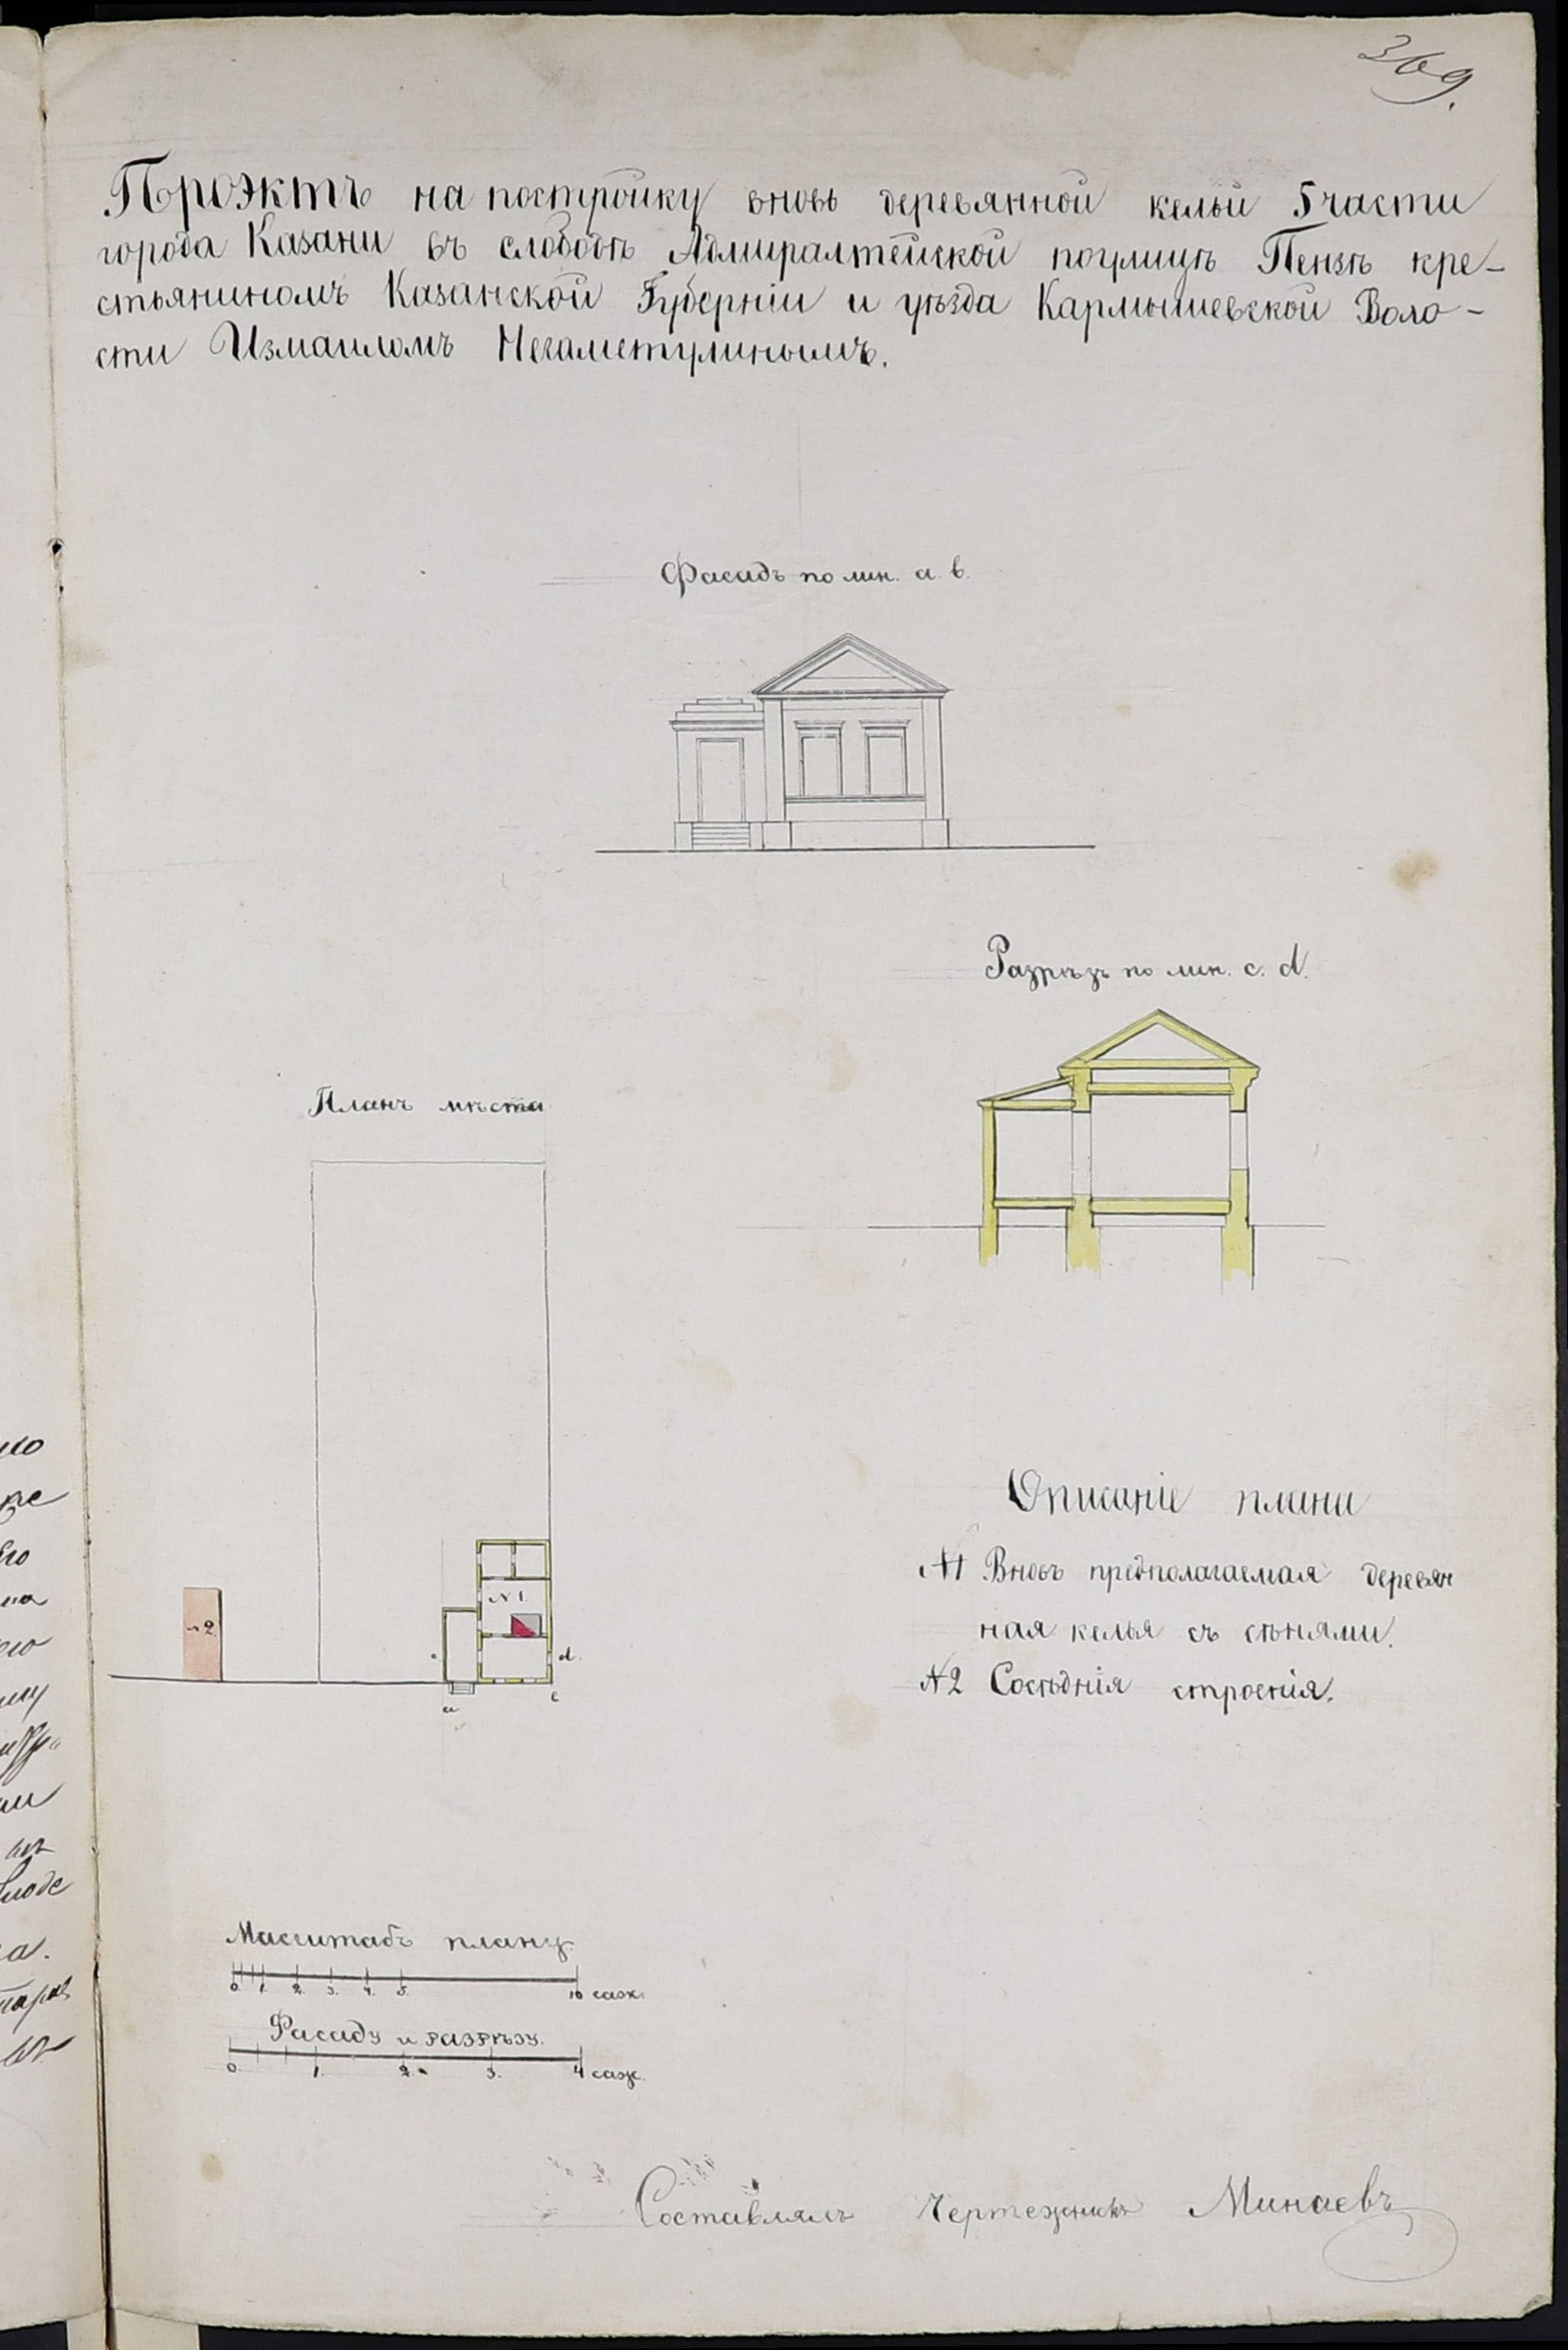 369.
Проэктъ на постройку вновь деревянной кельи 5 части
города Казани въ слободѣ Адмиралтейской по улицѣ Пензѣ кре-
стьяниномъ Казанской Губерніи и уѣзда Кармышевской Воло-
сти Измаиломъ Негаметулинымъ.
Фасадъ по лин. а. в.
Разрѣзъ по лин. c. d.
Планъ мѣста
N 1
№ 2
c
d.
а
в
Описаніе плана
№1 Вновь предполагаемая деревян
ная келья съ сѣнями.
№2 Сосѣднія строенія.
Масштабъ плану
0 1. 2. 3. 4. 5. 10 саж.
Фасаду и разрѣзу.
0 1. 2. 3. 4 саж.
Составлялъ Чертежникъ Минаевъ